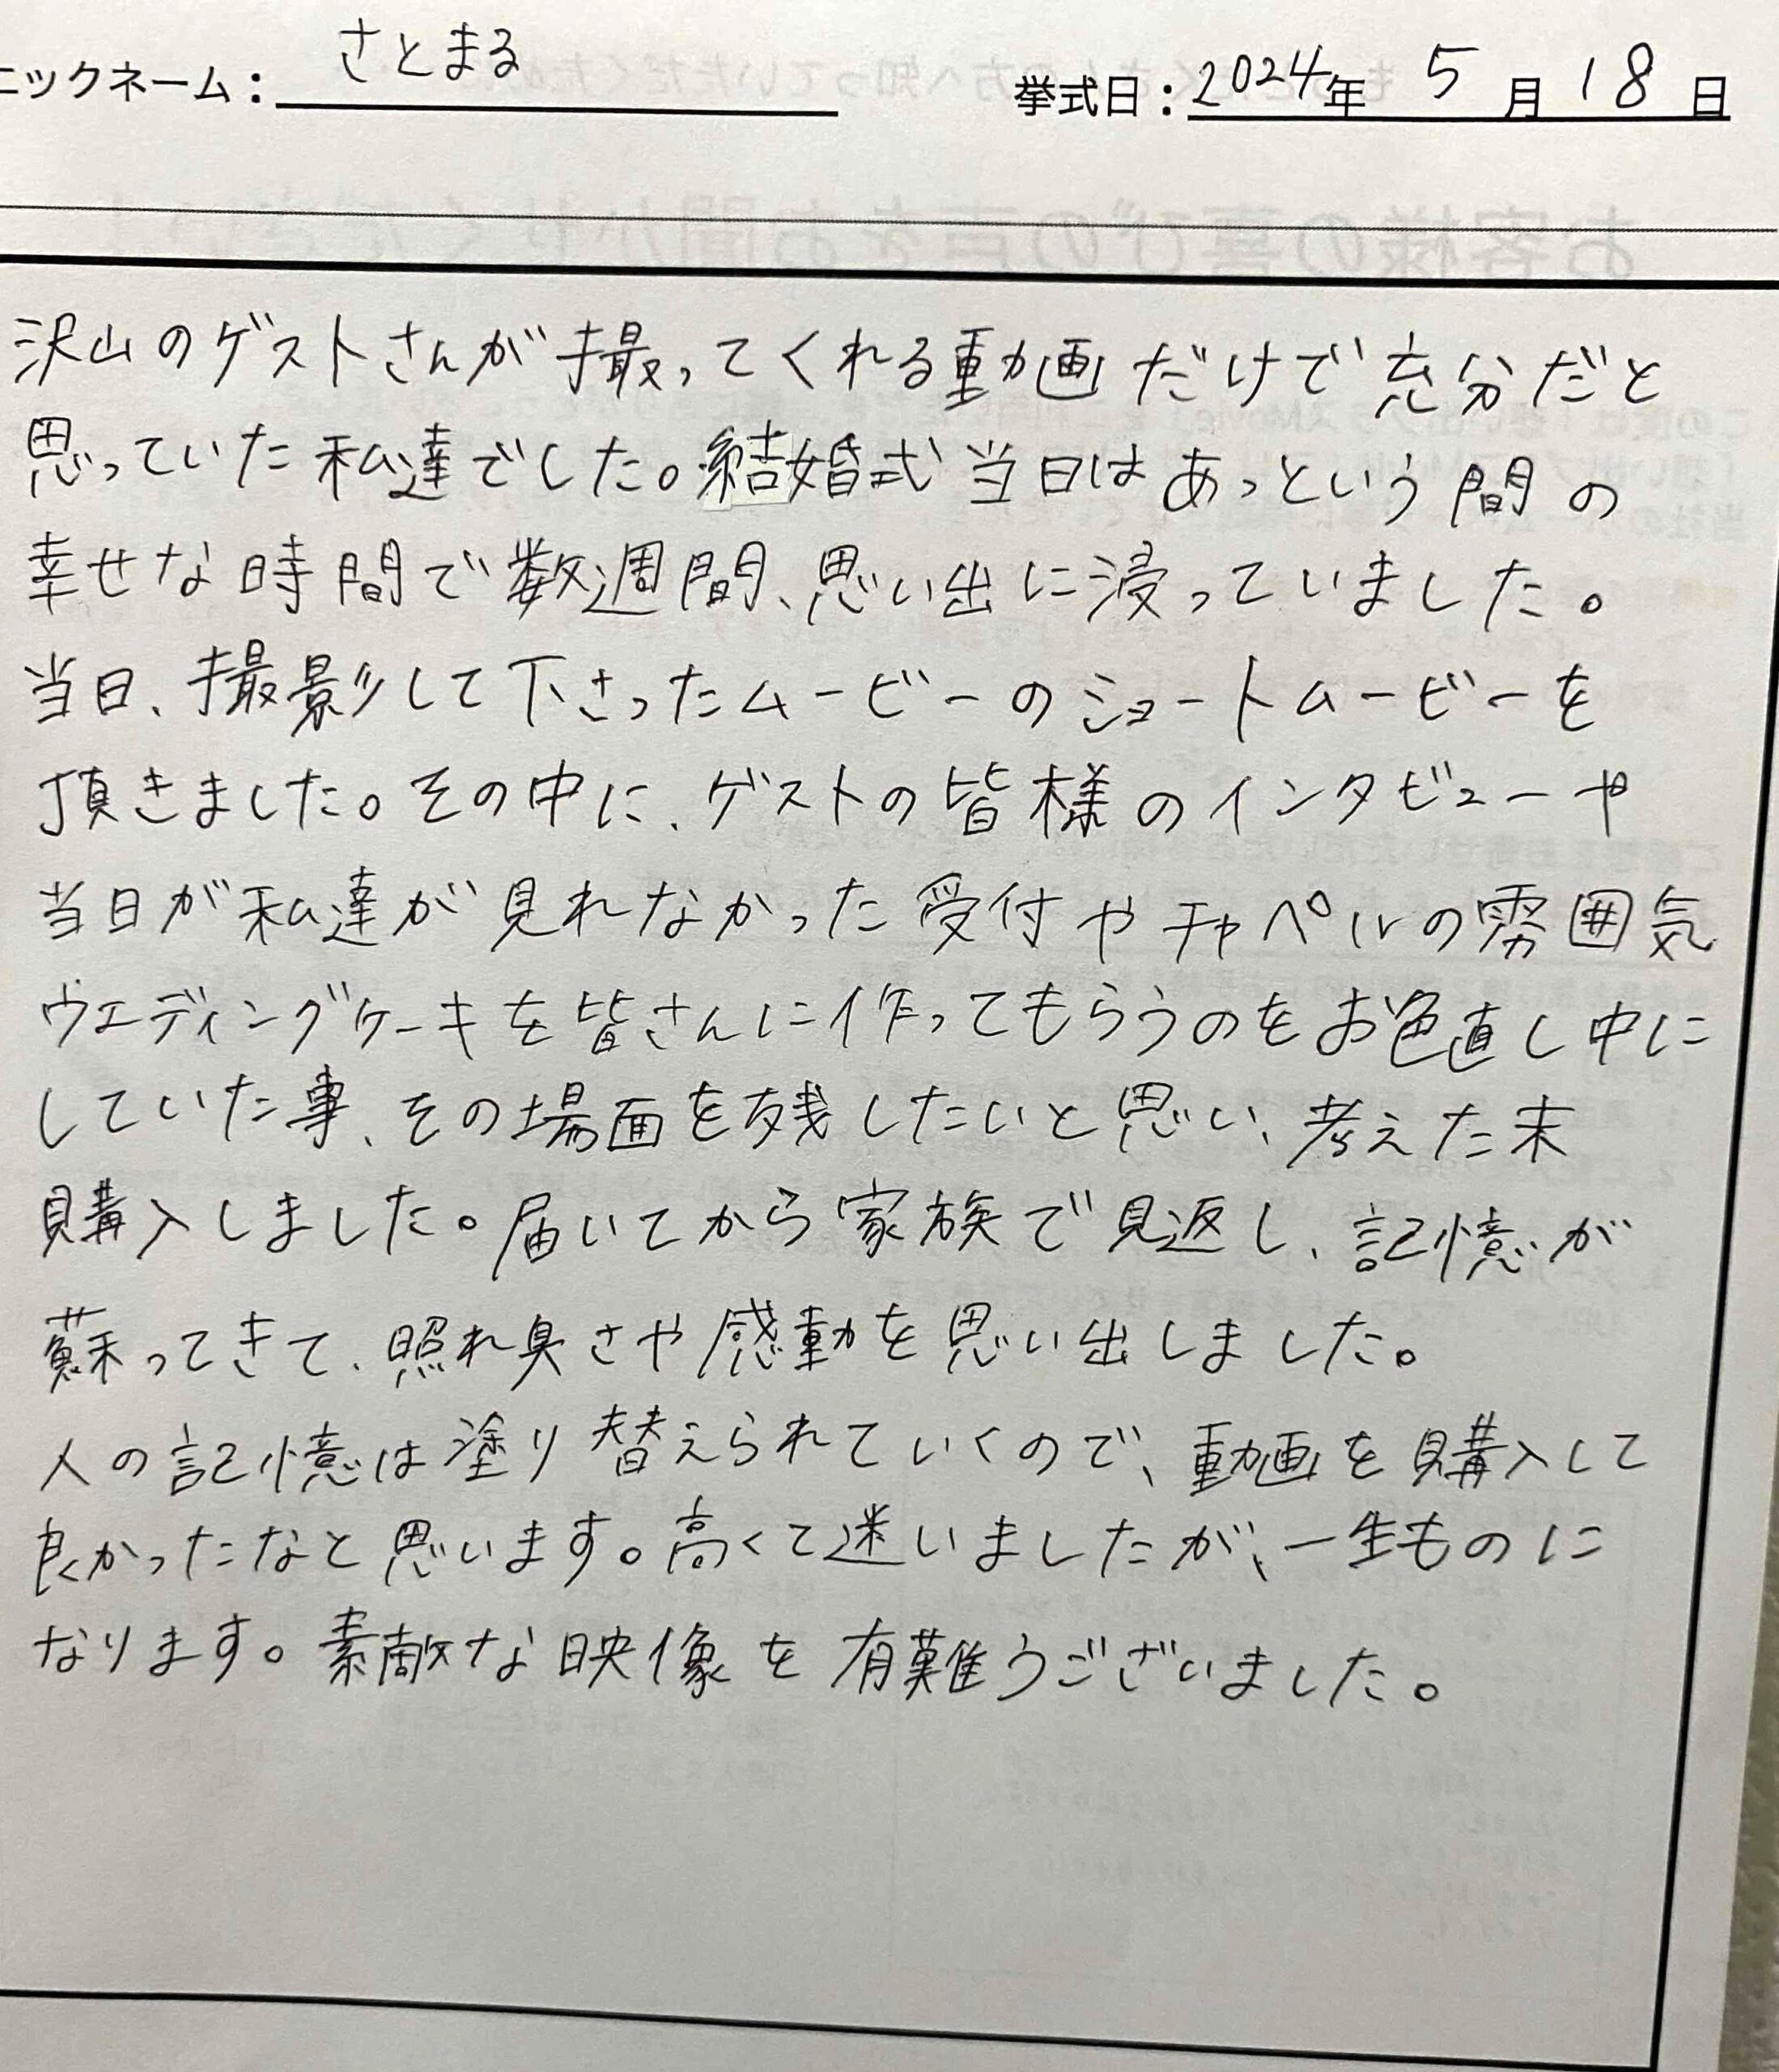 ニックネーム： さとまる 挙式日：2024年 5月18日
沢山のゲストさんが撮ってくれる動画だけで充分だと
思っていた私達でした。結婚式当日はあっという間の
幸せな時間で数週間、思い出に浸っていました。
当日、撮影して下さったムービーのショートムービーを
頂きました。その中に、ゲストの皆様のインタビューや
当日が私達が見れなかった受付やチャペルの雰囲気
ウエディングケーキを皆さんに作ってもらうのをお色直し中に
していた事、その場面を残したいと思い、考えた末
購入しました。届いてから家族で見返し、記憶が
蘇ってきて、照れ臭さや感動を思い出しました。
人の記憶は塗り替えられていくので、動画を購入して
良かったなと思います。高くて迷いましたが、一生ものに
なります。素敵な映像を有難うございました。